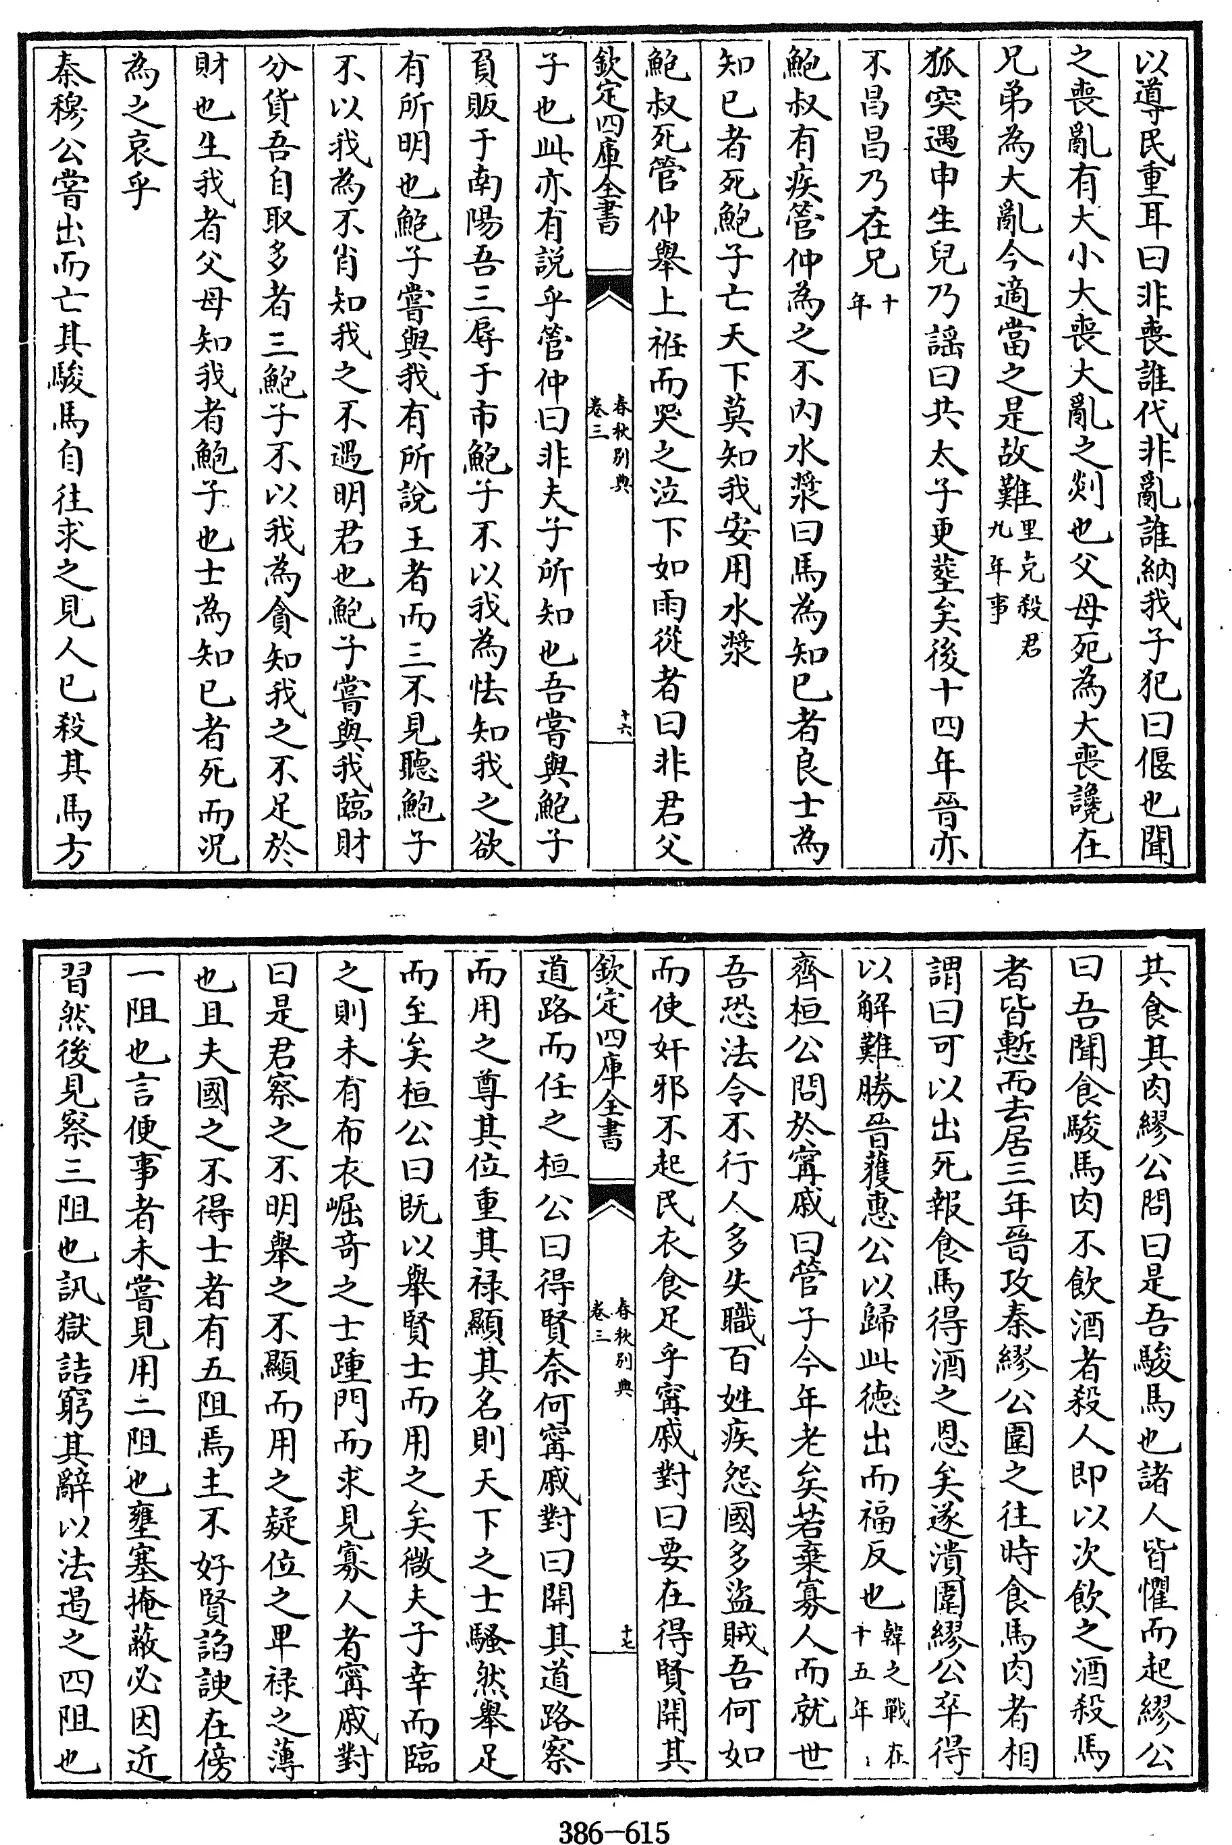 以導民重耳曰非喪誰代非亂誰納我子犯曰偃也聞
之喪亂有大小大喪大亂之剡也父母死為大喪讒在
兄弟為大亂今適當之是故難里克殺君九年事
狐突遇申生兒乃謡曰共太子更𦵏矣後十四年晉亦
不昌昌乃在兄十年
鮑叔有疾管仲為之不内水漿曰馬為知已者良士為
知已者死鮑子亡天下莫知我安用水漿
鮑叔死管仲舉上袵而哭之泣下如雨從者曰非君父
欽定四庫全書
春秋別典
卷三
十六
子也此亦有説乎管仲曰非夫子所知也吾嘗與鮑子
負販于南陽吾三辱于市鮑子不以我為怯知我之欲
有所明也鮑子嘗與我有所說王者而三不見聽鮑子
不以我為不肖知我之不遇明君也鮑子嘗與我臨財
分貨吾自取多者三鮑子不以我為貪知我之不足於
財也生我者父母知我者鮑子也士為知已者死而況
為之哀乎
秦穆公嘗出而亡其駿馬自往求之見人已殺其馬方
共食其肉繆公問曰是吾駿馬也諸人皆懼而起繆公
曰吾聞食駿馬肉不飲酒者殺人即以次飲之酒殺馬
者皆慙而去居三年晉攻秦繆公圍之往時食馬肉者相
謂曰可以出死報食馬得酒之恩矣遂潰圍繆公卒得
以解難勝晉獲惠公以歸此德出而福反也韓之戰在十五年
齊桓公問於甯戚曰管子今年老矣若棄寡人而就世
吾恐法令不行人多失職百姓疾怨國多盜賊吾何如
而使奸邪不起民衣食足乎甯戚對曰要在得賢開其
欽定四庫全書
春秋別典
卷三
十七
道路而任之桓公曰得賢奈何甯戚對曰開其道路察
而用之尊其位重其禄顯其名則天下之士騷然舉足
而至矣桓公曰既以舉賢士而用之矣微夫子幸而臨
之則未有布衣崛奇之士踵門而求見寡人者甯戚對
曰是君察之不明舉之不顯而用之疑位之卑禄之薄
也且夫國之不得士者有五阻焉主不好賢諂諛在傍
一阻也言便事者未嘗見用二阻也壅塞掩蔽必因近
習然後見察三阻也訊獄詰窮其辭以法過之四阻也
386-615